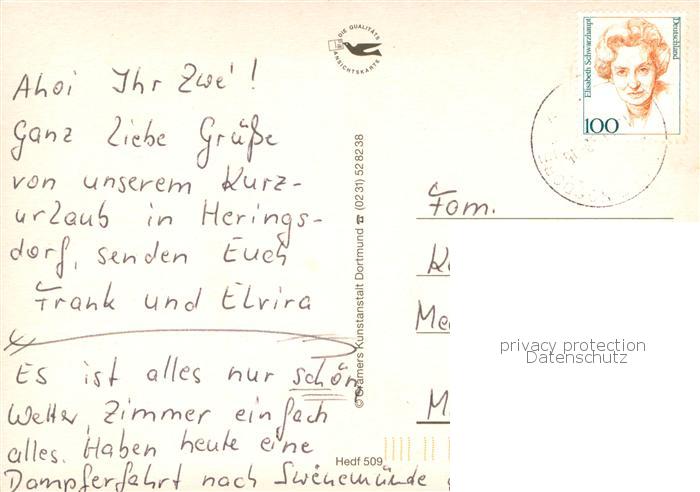 Ahoi Ihr Zwe' !
Ganz liebe Grüße
von unserem Kurz-
urlaub in Herings-
dorf, senden Euch
Frank und Elvira
Es ist alles nur schön
Wetter, Zimmer einfach
alles. Haben heute eine
Dampferfahrt nach Swienemünde
DIE QUALITÄTS
ANSICHTSKARTE
© Cramers Kunstanstalt Dortmund ☎ (0231) 528238
Hedf 509
Elisabeth Schwarzhaupt
Deutschland
100
Fam.
privacy protection
Datenschutz